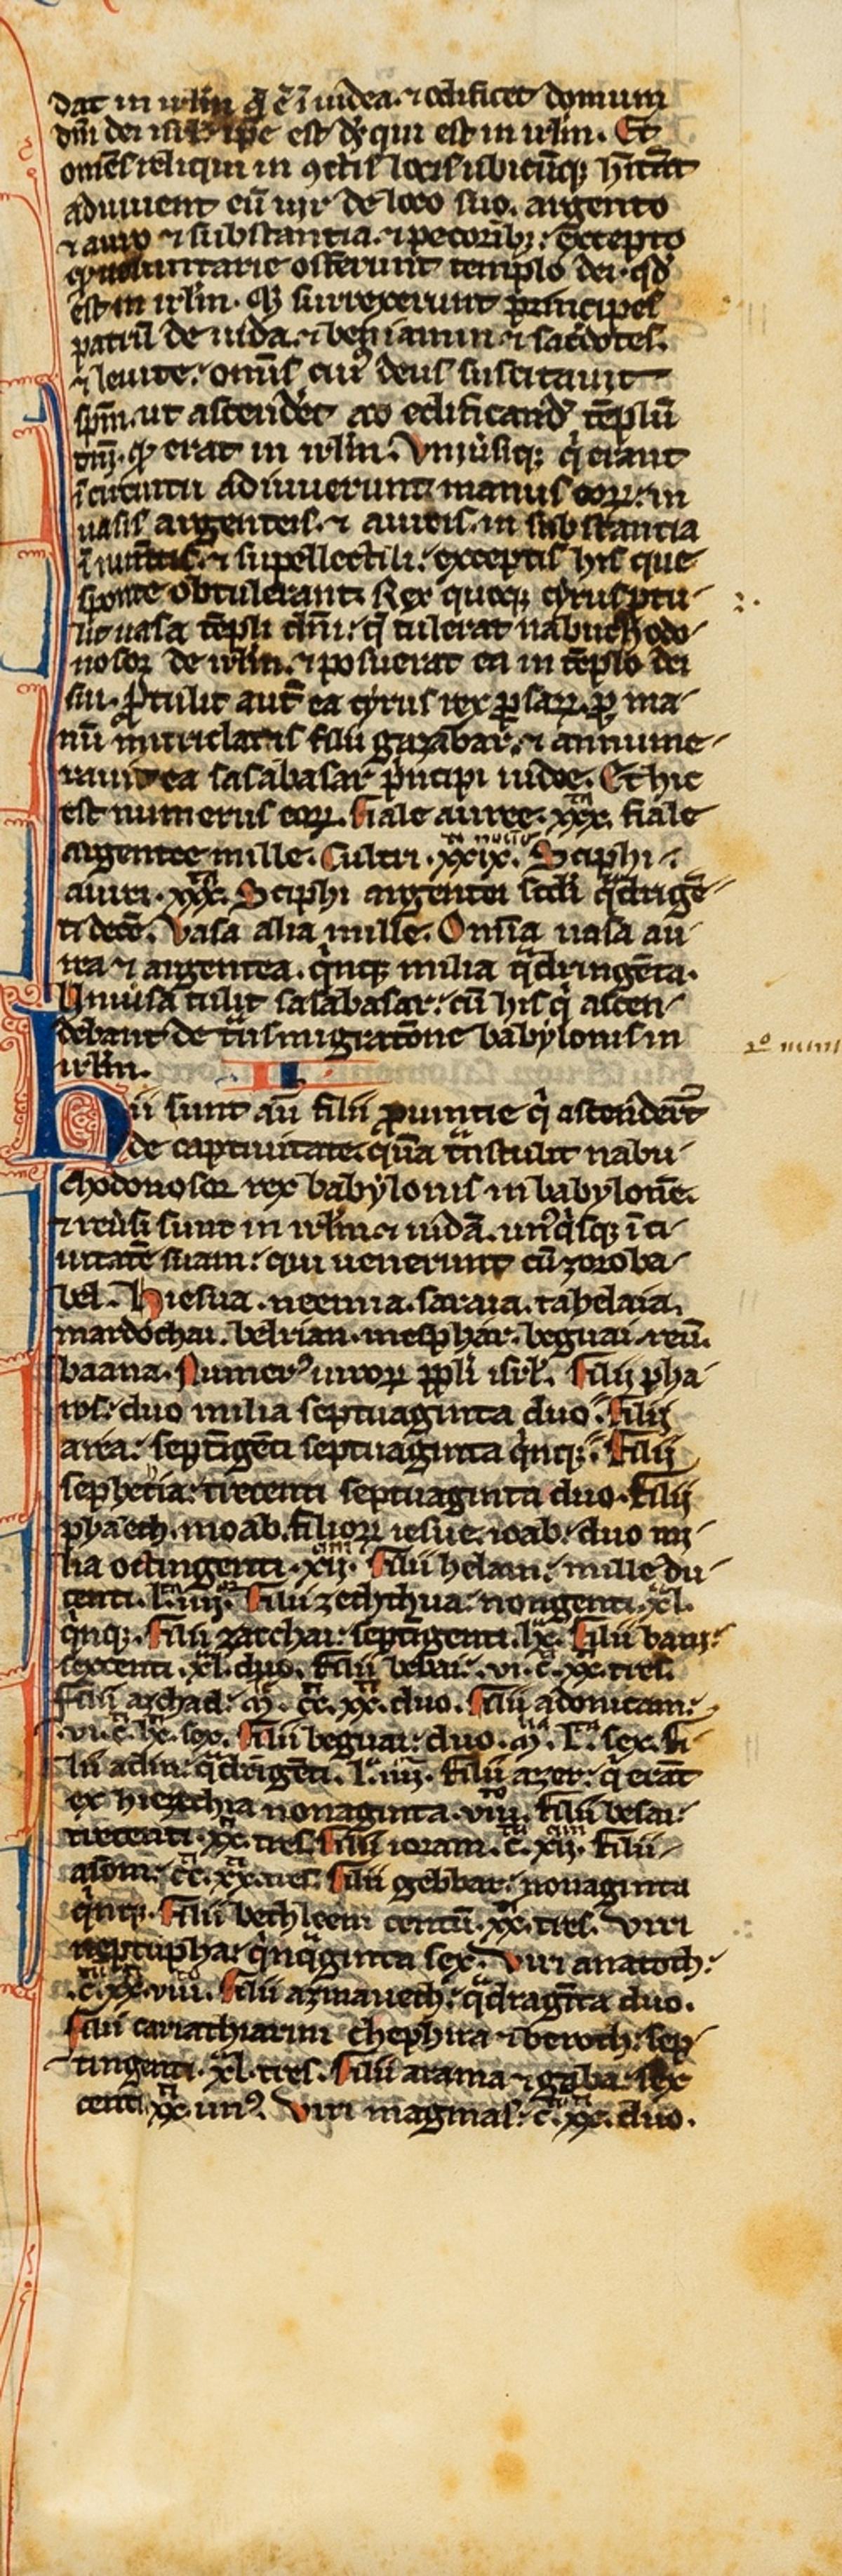 dat in irl̄m q̄ ē ī iudea. ⁊ edificet domum
dn̄i dei isrl̄ ip̄e est ds̄ qui est in irl̄m. Et
om̄es reliqui in ꝯctis locis ubicūq; h̄itāt
adiuuent eū uir de loco suo. argento
⁊ auro ⁊ substantia. ⁊ pecorib;: excepto
qd̄ uoluntarie offerunt templo dei. qd̄
est in irl̄m. Et surrexerunt principes
patrū de iuda. ⁊ beniamin ⁊ sac̄dotes.
⁊ leuite. om̄is cui' deus suscitauit
sp̄m. ut ascender̄t ad edificand' tēplū
dn̄i. qd̄ erat in irl̄m. Vniūsiq; q̇ erant
ī circuitu adiuuerunt manus eoꝝ. in
uasis argenteis. ⁊ aureis. in substantia
ī iumētis. ⁊ supellectili: exceptis his que
sponte obtulerant. Rex quoq; cyrus ꝓtu-
lit uasa tēpli dn̄i: q̄ tulerat nabuchodo-
nosor de irl̄m. ⁊ posuerat ea in tēplo dei
sui. ꝓtulit aut̄ ea cyrus rex ꝑsaꝝ. ꝑ ma-
nū mitridatis filii gazabar. ⁊ annume-
rauit ea sasabasar p̄ncipi iude. Et hic
est numerus eoꝝ. Fiale auree. xxx. fiale
argentee mille. Cultri. xxix. Sciphi
aurei. xxx. Sciphi argentei sc̄di q̄dringē-
ti decē. Vasa alia mille. Om̄ia uasa au-
rea ⁊ argentea. q̇nq; milia q̄dringēta.
Vniūsa tulit sasabasar: cū his q̇ ascen-
debant de tᵃnsmigratōne babylonis in
irl̄m. II
Hii sunt aū filii ꝓuintie q̇ ascender̄t
de captiuitate. quā tᵃnstulit nabu-
chodonosor rex babylonis in babylonē.
⁊ reūsi sunt in irl̄m ⁊ iudā. unꝰq̇sq; ī ci-
uitatē suam: qui uenerunt cū zoroba-
bel. Hiesua. neemia. saraia. rahelaia.
mardochai. belsan. mesphar. beguai. reū.
baana. Numerꝰ uiroꝝ ppl̄i isrl̄. Filii pha-
ros: duo milia septuaginta duo. Filii
area: septīgēti septuaginta q̇nq;. Filii
sephetia: trecenti septuaginta duo. Filii
phaech. moab. filioꝝ iesue. ioab: duo mi-
lia octingenti. xii. Filii helam: mille du-
centi. l. iiii. Filii zechthua: nongenti. xl.
q̇nq;. Filii zacchai: septīgenti. lx. Filii bani:
sexcenti. xl. duo. Filii bebai: .vi. c. xx. tres.
Filii azchad: m̄. cc. xx. duo. Filii adonicam:
.vi. c. lx. sex. Filii beguai: duo. m̄. l. sex. Fi-
lii adin: q̄dringēti. l. iiii. Filii azer: q̇ erāt
ex hiezechia nonaginta. viii. Filii besai:
trecenti. xx. tres. Filii ioram. c. xii. Filii
asom: cc. xx. tres. Filii gebbar: nonaginta
q̇nq;. Filii bethleem centū. xx. tres. Viri
neptupha: q̇nq̄ginta sex. Viri anatoth:
.c. xx. viii. Filii azmaueth: q̄dragīta duo.
Filii cariathiarim chephira ⁊ beroth: sep-
tingenti. xl. tres. Filii arama ⁊ gaba: sex
centi. xx. unꝰ. Viri magmas: c. xx. duo.